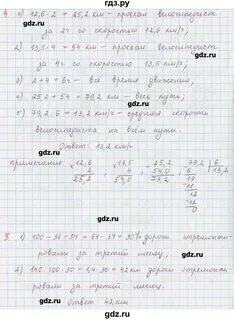 гдз.ру
4 1) 12,6 · 2 = 25,2 км – проехал велосипедист
за 2ч со скоростью 12,6 км/ч,
2) 13,5 · 4 = 54 км – проехал велосипедист
за 4ч со скоростью 13,5 км/ч,
3) 2 + 4 = 6ч – все время движения,
4) 25,2 + 54 = 79,2 км – весь путь,
5) 79,2 : 6 = 13,2 км/ч – средняя скорость
велосипедиста на всём пути.
Ответ: 13,2 км/ч.
примечание:
12,6
2
25,2
13,5
4
54,0
25,2
54,0
79,2
79,2 6
6 13,2
19
18
12
12
0
5. 1) 100 – 36 – 34 = 64 – 34 = 30% дороги отремонти-
ровали за третий месяц,
2) 140 : 100 · 30 = 1,4 · 30 = 42 км дороги отремонти-
ровали за третий месяц.
Ответ 42 км